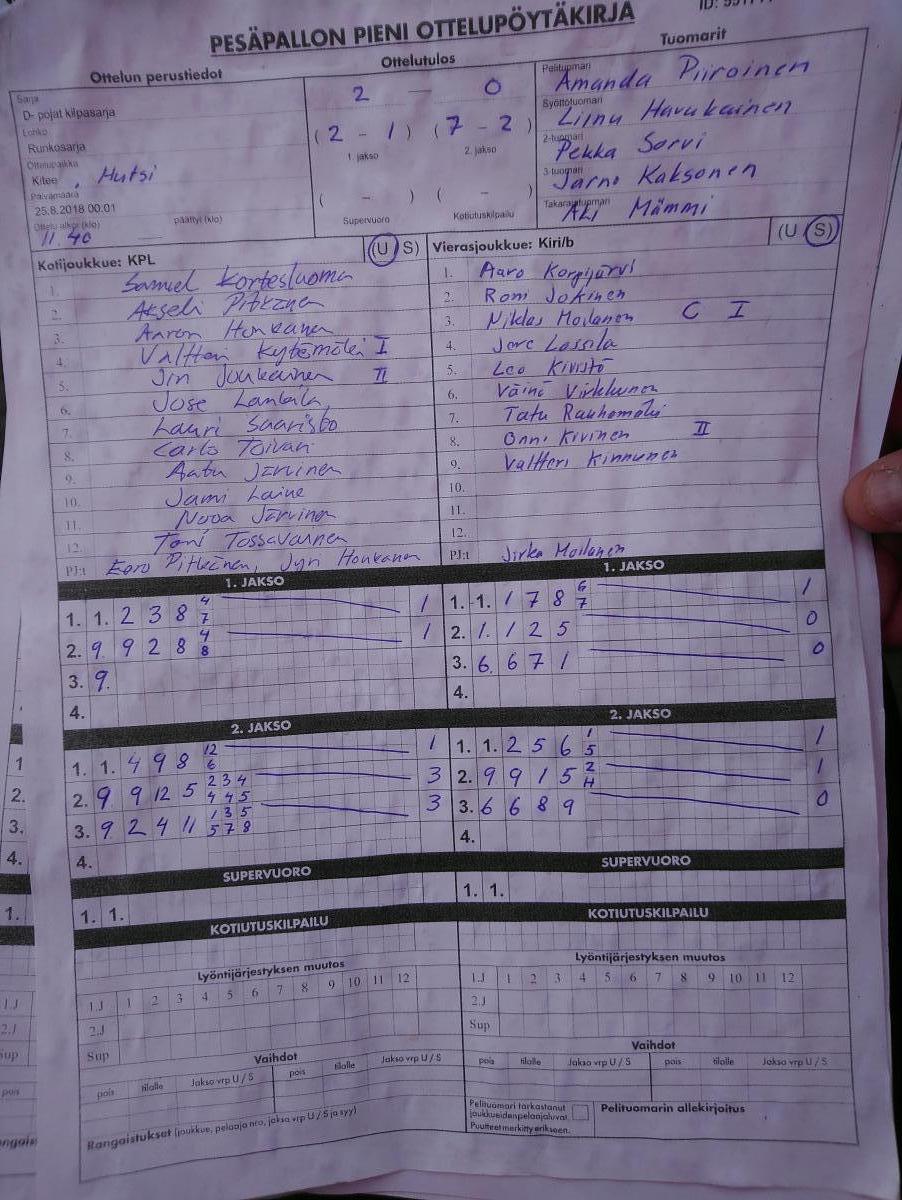 PESÄPALLON PIENI OTTELUPÖYTÄKIRJA
Ottelun perustiedot
Ottelutulos
Tuomarit
Sarja
D- pojat kilpasarja
Lohko
Runkosarja
Ottelupaikka
Kitee, Hutsi
Päivämäärä
25.8.2018 00.01
Ottelu alkoi (klo) päättyi (klo)
11.40
2 — 0
(2 - 1) (7 - 2)
1. jakso 2. jakso
( - ) ( - )
Supervuoro Kotiutuskilpailu
Pelituomari
Amanda Piiroinen
Syöttötuomari
Linu Havukainen
2-tuomari
Pekka Sorvi
3-tuomari
Jarno Kaksonen
Takarajatuomari
Ali Mämmi
Kotijoukkue: KPL (U S)
1. Samuel Kortesluoma
2. Akseli Pitkänen
3. Aaron Honkanen
4. Valtteri Kytömäki I
5. Jin Joukainen II
6. Jose Lankila
7. Lauri Saaristo
8. Carlo Toivari
9. Aatu Järvinen
10. Jami Laine
11. Nooa Järvinen
12. Toni Tossavainen
PJ:t Eero Pitkänen, Jyri Honkanen
Vierasjoukkue: Kiri/b (U S)
1. Aaro Korpijärvi
2. Roni Jokinen
3. Niklas Moilanen C I
4. Jere Lassila
5. Leo Kivistö
6. Väinö Virkkunen
7. Tatu Rauhamäki
8. Onni Kivinen II
9. Valtteri Kinnunen
10.
11.
12.
PJ:t Jirka Moilanen
1. JAKSO
1. 1. 2 3 8 4 7 1
2. 9 9 2 8 4 8 1
3. 9.
4.
1. JAKSO
1. 1. 1 7 8 6 7 1
2. 1. 1 2 5 0
3. 6. 6 7 1 0
4.
2. JAKSO
1. 1. 4 9 8 12 6 1
2. 9 9 12 5 2 3 4 4 4 5 3
3. 9 2 4 11 1 3 5 5 7 8 3
4.
2. JAKSO
1. 1. 2 5 6 1 5 1
2. 9 9 1 5 2 H 1
3. 6 6 8 9 0
4.
SUPERVUORO
1. 1.
SUPERVUORO
1. 1.
KOTIUTUSKILPAILU
KOTIUTUSKILPAILU
Lyöntijärjestyksen muutos
1.J 1 2 3 4 5 6 7 8 9 10 11 12
2.J
Sup
Lyöntijärjestyksen muutos
1.J 1 2 3 4 5 6 7 8 9 10 11 12
2.J
Sup
Vaihdot
pois tilalle Jakso vrp U / S pois tilalle Jakso vrp U / S
Vaihdot
pois tilalle Jakso vrp U / S pois tilalle Jakso vrp U / S
Rangaistukset (joukkue, pelaaja nro, jakso vrp U / S ja syy)
Pelituomari tarkastanut
joukkueidenpelaajaluvat.
Puutteet merkitty erikseen.
Pelituomarin allekirjoitus